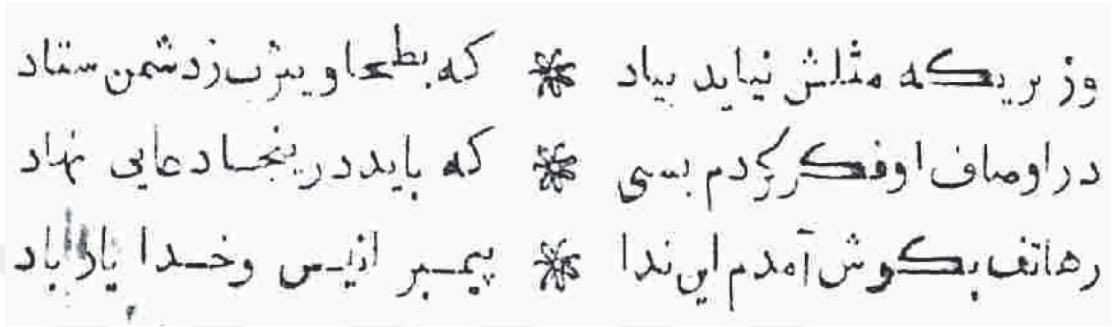 وزیریکه مثلش نیاید بیاد * که بطحا و یثرب زدشمن ستاد
در اوصاف او فکر کردم بسی * که باید درینجا دعایی نهاد
زهاتف بگوش آمدم این ندا * پیمبر انیس و خدا یار باد